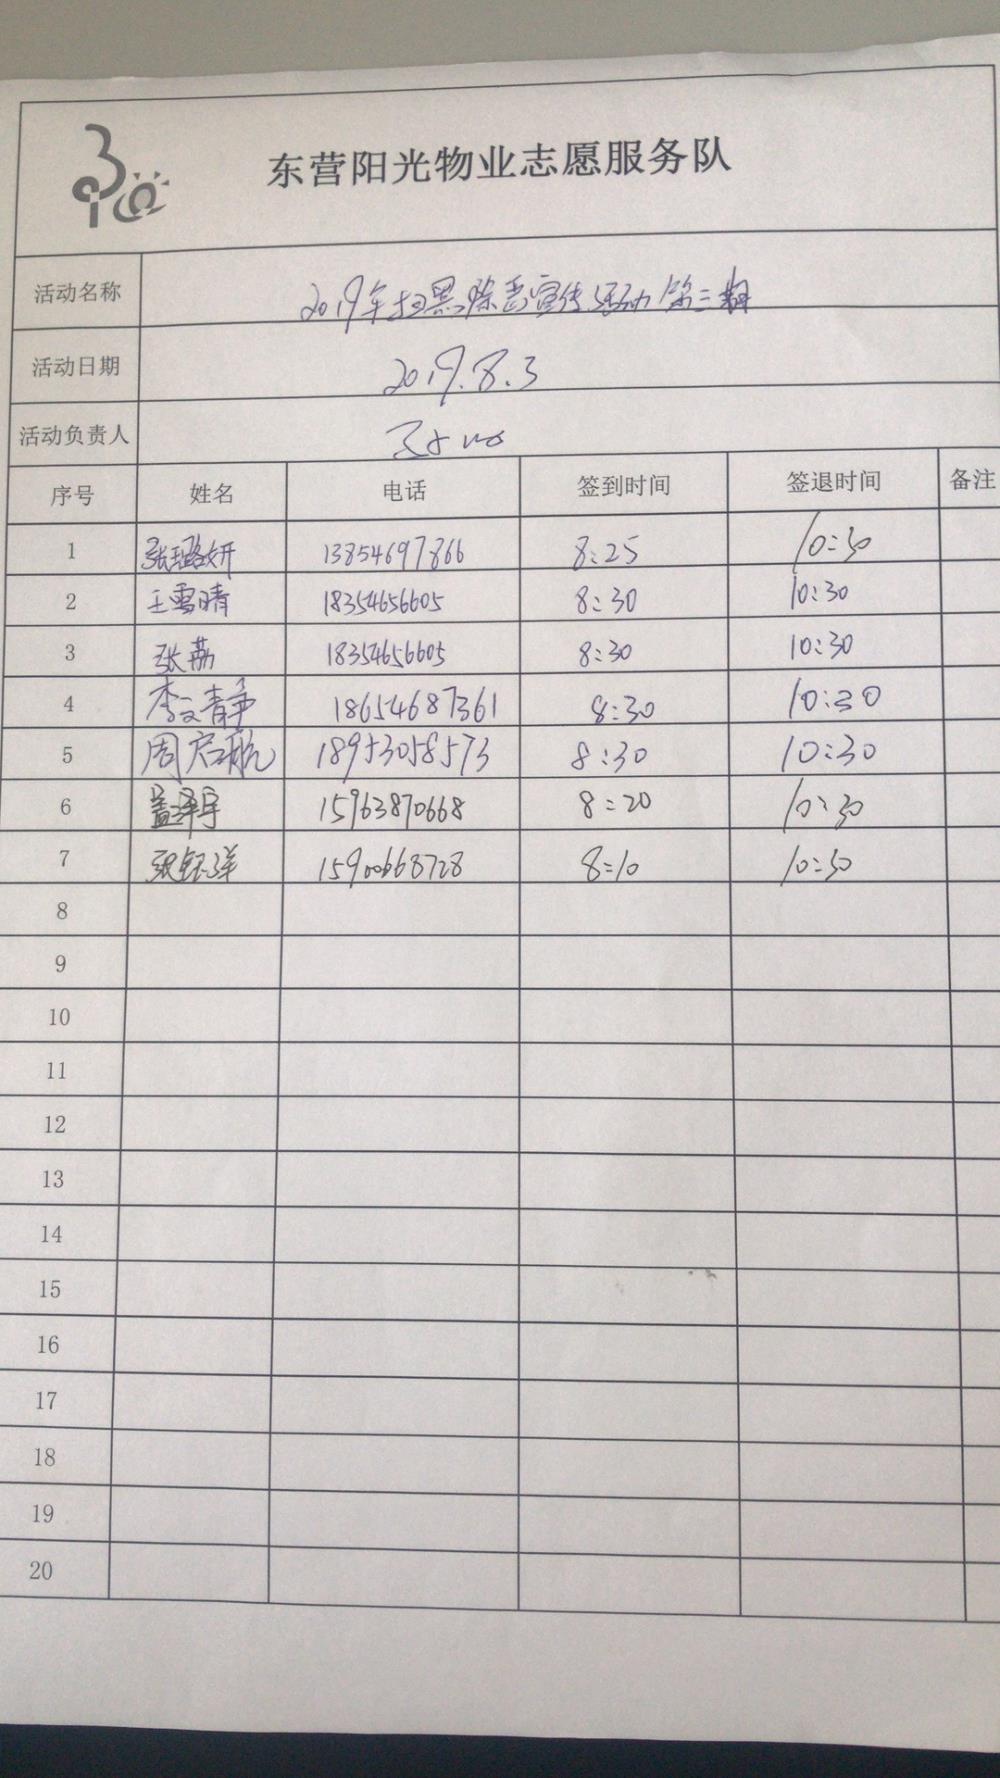 东营阳光物业志愿服务队
活动名称 2019年扫黑除恶宣传活动第三期
活动日期 2019.8.3
活动负责人
序号 姓名 电话 签到时间 签退时间 备注
1 张璐妍 13854697866 8:25 10:30
2 王雪晴 18354656605 8:30 10:30
3 张荔 18354656605 8:30 10:30
4 李文静 18654687361 8:30 10:30
5 周启航 18953058573 8:30 10:30
6 盖泽宇 15963870668 8:20 10:30
7 张钰洋 15900668728 8:10 10:30
8
9
10
11
12
13
14
15
16
17
18
19
20